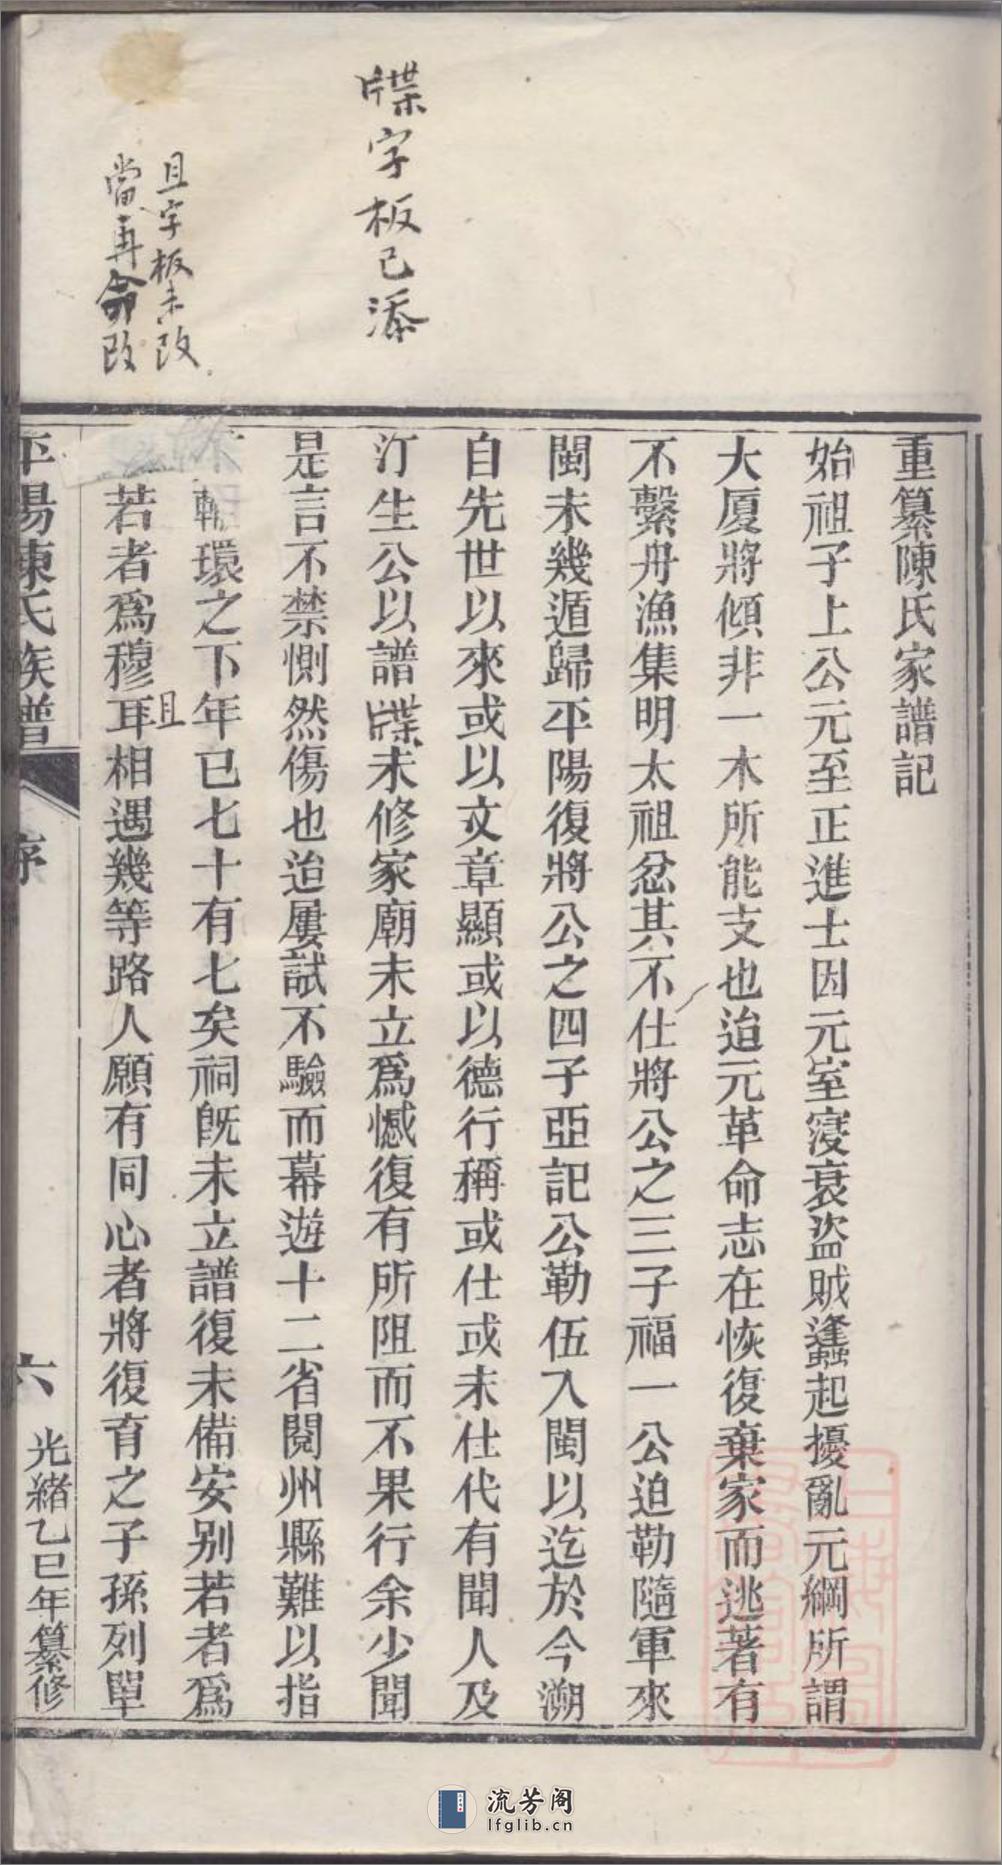 牒字板已添
且字板未改
當再命改
重纂陳氏家譜記
始祖子上公元至正進士因元室寖衰盜賊逢起擾亂元綱所謂
大厦將傾非一木所能支也迨元革命志在恢復棄家而逃著有
不繫舟漁集明太祖忿其不仕將公之三子福一公迫勒隨軍來
閩未幾遁歸平陽復將公之四子亞記公勒伍入閩以迄於今溯
自先世以來或以文章顯或以德行稱或仕或未仕代有聞人及
汀生公以譜牒未修家廟未立爲憾復有所阻而不果行余少聞
是言不禁惻然傷也迨屢試不驗而幕遊十二省閱州縣難以指
環之下年已七十有七矣祠既未立譜復未備安别若者爲
若者爲穆耳且相遇幾等路人願有同心者將復育之子孫列單
平陽陳氏族譜
序
六
光緒乙巳年纂修
流芳阁
lfglib.cn